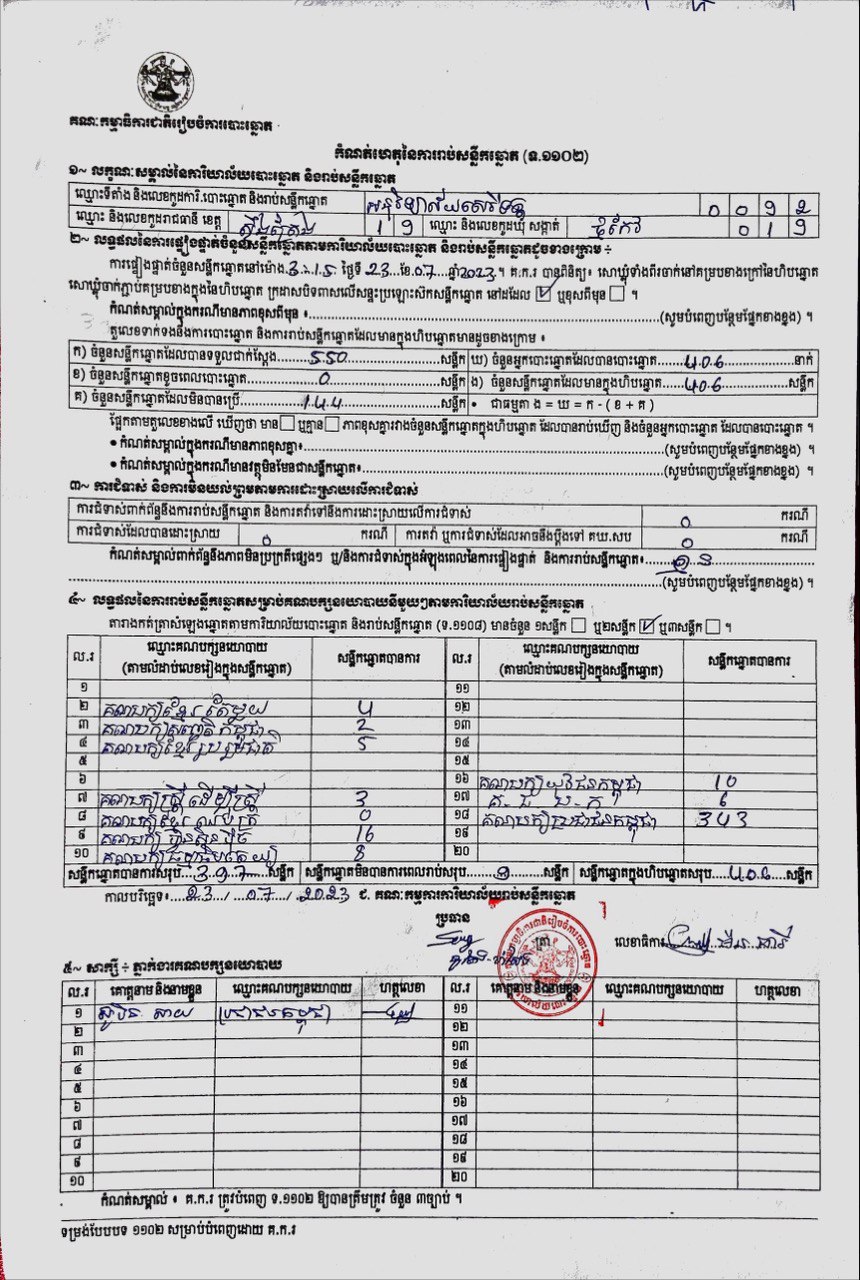 គណៈកម្មាធិការជាតិរៀបចំការបោះឆ្នោត
កំណត់ហេតុនៃការរាប់សន្លឹកឆ្នោត (ទ.១១០២)
១~ លក្ខណៈសម្គាល់នៃការិយាល័យបោះឆ្នោត និងរាប់សន្លឹកឆ្នោត
ឈ្មោះទីតាំង និងលេខកូដការិ.បោះឆ្នោត និងរាប់សន្លឹកឆ្នោត អនុវិទ្យាល័យ 0 0 9 2
ឈ្មោះ និងលេខកូដរាជធានី ខេត្ត ស្ទឹងត្រែង 1 9 ឈ្មោះ និងលេខកូដឃុំ សង្កាត់ 0 1 9
២~ លទ្ធផលនៃការផ្ទៀងផ្ទាត់ចំនួនសន្លឹកឆ្នោតតាមការិយាល័យបោះឆ្នោត និងរាប់សន្លឹកឆ្នោតដូចខាងក្រោម ÷
ការផ្ទៀងផ្ទាត់ចំនួនសន្លឹកឆ្នោតនៅម៉ោង 3:15 ថ្ងៃទី 23 ខែ 07 ឆ្នាំ 2023 ។ គ.ក.រ បានពិនិត្យ៖ សោឃ្មុំទាំងពីរចាក់នៅគម្របខាងក្រៅនៃហិបឆ្នោត
សោឃ្មុំចាក់ភ្ជាប់គម្របខាងក្នុងនៃហិបឆ្នោត ក្រដាសបិទពាសលើសន្ទះប្រឡោះស៊កសន្លឹកឆ្នោត នៅដដែល ☑ ឬខុសពីមុន ☐ ។
កំណត់សម្គាល់ក្នុងករណីមានភាពខុសពីមុន ៖ (សូមបំពេញបន្ថែមផ្នែកខាងខ្នង) ។
តួលេខទាក់ទងនឹងការបោះឆ្នោត និងការរាប់សន្លឹកឆ្នោតដែលមានក្នុងហិបឆ្នោតមានដូចខាងក្រោម ៖
ក) ចំនួនសន្លឹកឆ្នោតដែលបានទទួលជាក់ស្តែង 550 សន្លឹក ឃ) ចំនួនអ្នកបោះឆ្នោតដែលបានបោះឆ្នោត 406 នាក់
ខ) ចំនួនសន្លឹកឆ្នោតខូចពេលបោះឆ្នោត 0 សន្លឹក ង) ចំនួនសន្លឹកឆ្នោតដែលមានក្នុងហិបឆ្នោត 406 សន្លឹក
គ) ចំនួនសន្លឹកឆ្នោតដែលមិនបានប្រើ 144 សន្លឹក • ជាធម្មតា ង = ឃ = ក - ( ខ + គ )
ផ្អែកតាមតួលេខខាងលើ ឃើញថា មាន ☐ ឬគ្មាន ☐ ភាពខុសគ្នារវាងចំនួនសន្លឹកឆ្នោតក្នុងហិបឆ្នោត ដែលបានរាប់ឃើញ និងចំនួនអ្នកបោះឆ្នោត ដែលបានបោះឆ្នោត ។
• កំណត់សម្គាល់ក្នុងករណីមានភាពខុសគ្នា៖ (សូមបំពេញបន្ថែមផ្នែកខាងខ្នង) ។
• កំណត់សម្គាល់ក្នុងករណីមានវត្ថុមិនមែនជាសន្លឹកឆ្នោត៖ (សូមបំពេញបន្ថែមផ្នែកខាងខ្នង) ។
៣~ ការជំទាស់ និងការមិនយល់ព្រមតាមការដោះស្រាយលើការជំទាស់
ការជំទាស់ពាក់ព័ន្ធនឹងការរាប់សន្លឹកឆ្នោត និងការតវ៉ាទៅនឹងការដោះស្រាយលើការជំទាស់ 0 ករណី
ការជំទាស់ដែលបានដោះស្រាយ 0 ករណី ការតវ៉ា ឬការជំទាស់ដែលអាចនឹងប្តឹងទៅ គឃ.សប 0 ករណី
កំណត់សម្គាល់ពាក់ព័ន្ធនឹងភាពមិនប្រក្រតីផ្សេងៗ ឬ/និងការជំទាស់ក្នុងអំឡុងពេលនៃការផ្ទៀងផ្ទាត់ និងការរាប់សន្លឹកឆ្នោត៖ គ្មាន
(សូមបំពេញបន្ថែមផ្នែកខាងខ្នង) ។
៤~ លទ្ធផលនៃការរាប់សន្លឹកឆ្នោតសម្រាប់គណបក្សនយោបាយនីមួយៗតាមការិយាល័យរាប់សន្លឹកឆ្នោត
តារាងកត់ត្រាសំឡេងឆ្នោតតាមការិយាល័យបោះឆ្នោត និងរាប់សន្លឹកឆ្នោត (ទ.១១០៨) មានចំនួន ១សន្លឹក ☐ ឬ២សន្លឹក ☑ ឬ៣សន្លឹក ☐ ។
ល.រ ឈ្មោះគណបក្សនយោបាយ (តាមលំដាប់លេខរៀងក្នុងសន្លឹកឆ្នោត) សន្លឹកឆ្នោតបានការ ល.រ ឈ្មោះគណបក្សនយោបាយ (តាមលំដាប់លេខរៀងក្នុងសន្លឹកឆ្នោត) សន្លឹកឆ្នោតបានការ
១ ១១
២ គណបក្សខ្មែរតែមួយ 4 ១២
៣ គណបក្សសញ្ជាតិកម្ពុជា 2 ១៣
៤ គណបក្សខ្មែររួបរួមជាតិ 5 ១៤
៥ ១៥
៦ ១៦ គណបក្សយុវជនកម្ពុជា 10
៧ គណបក្សស្ត្រីដើម្បីស្ត្រី 3 ១៧ 6
៨ 0 ១៨ គណបក្សប្រជាជនកម្ពុជា 343
៩ គណបក្សហ៊្វុនស៊ិនប៉ិច 16 ១៩
១០ គណបក្សធម្មាធិបតេយ្យ 8 ២០
សន្លឹកឆ្នោតបានការសរុប 397 សន្លឹក សន្លឹកឆ្នោតមិនបានការពេលរាប់សរុប 9 សន្លឹក សន្លឹកឆ្នោតក្នុងហិបឆ្នោតសរុប 406 សន្លឹក
កាលបរិច្ឆេទ៖ 23 / 07 / 2023 ជ. គណៈកម្មការការិយាល័យរាប់សន្លឹកឆ្នោត
ប្រធាន ត្រា លេខាធិការ
៥~ សាក្សី ÷ ភ្នាក់ងារគណបក្សនយោបាយ
ល.រ គោត្តនាម និងនាមខ្លួន ឈ្មោះគណបក្សនយោបាយ ហត្ថលេខា ល.រ គោត្តនាម និងនាមខ្លួន ឈ្មោះគណបក្សនយោបាយ ហត្ថលេខា
១ ប្រជាជនកម្ពុជា ១១
២ ១២
៣ ១៣
៤ ១៤
៥ ១៥
៦ ១៦
៧ ១៧
៨ ១៨
៩ ១៩
១០ ២០
កំណត់សម្គាល់ ៖ គ.ក.រ ត្រូវបំពេញ ទ.១១០២ ឱ្យបានត្រឹមត្រូវ ចំនួន ៣ច្បាប់ ។
ទម្រង់បែបបទ ១១០២ សម្រាប់បំពេញដោយ គ.ក.រ